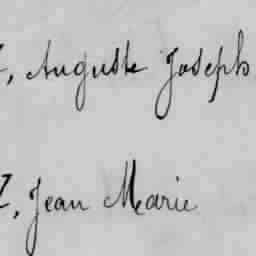 , Auguste Joseph
, Jean Marie